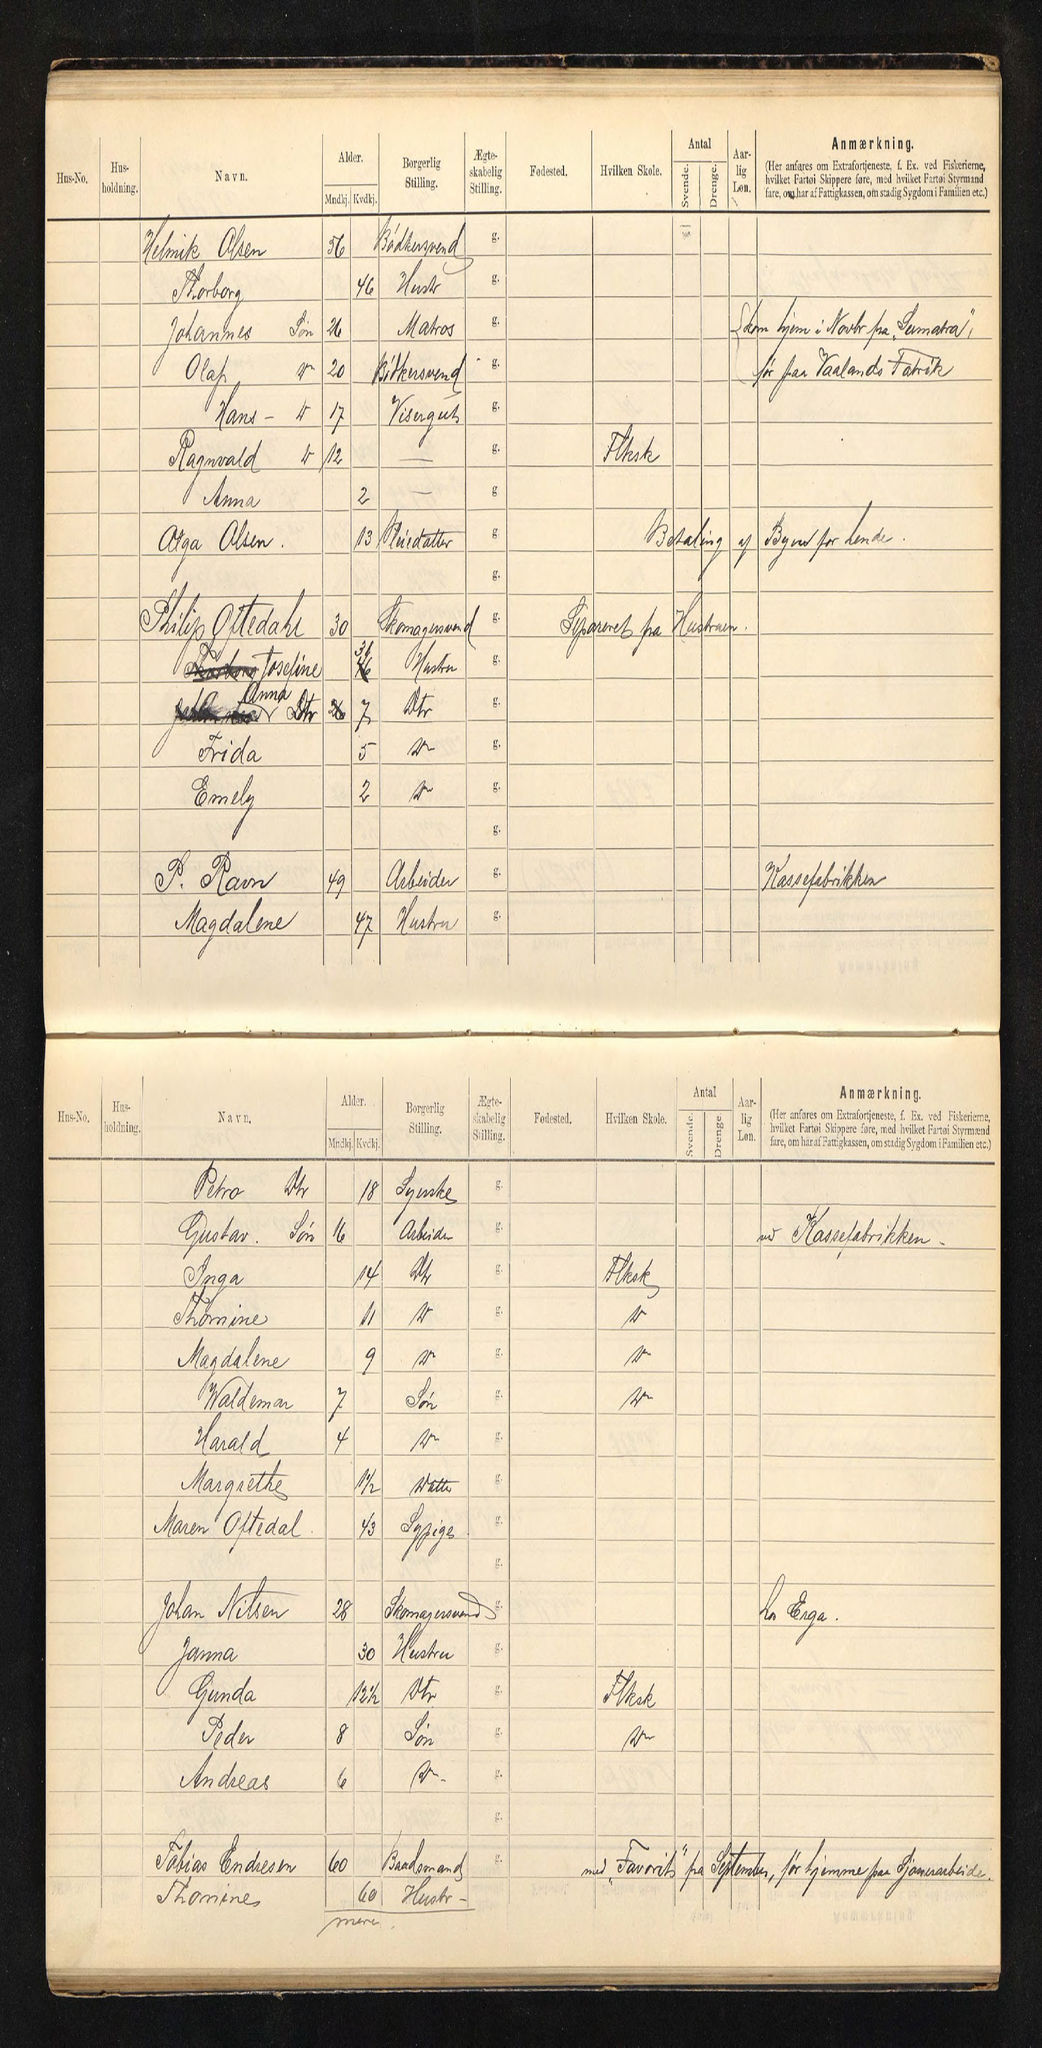 Hus-No. Hus-holdning. Navn. Alder. Mndkj. Kvdkj. Borgerlig Stilling. Ægte-skabelig Stilling. Fødested. Hvilken Skole. Antal Svende. Drenge. Aar-lig Løn. Anmærkning.
(Her anføres om Extrafortjeneste, f. Ex. ved Fiskerierne,
hvilket Fartøi Skippere føre, med hvilket Fartøi Styrmænd
fare, om har af Fattigkassen, om stadig Sygdom i Familien etc.)
Helmik Olsen 56 Bödkersvend g.
Thorborg 46 Hustr g.
Johannes Søn 26 Matros g. kom hjem i Novbr fra "Sumatra",
Olaf Do 20 Bödkersvend g. før paa Vaalands Fabrik
Hans - Do 17 Visergut g.
Ragnvald Do 12 — g. Flksk
Anna 2 — g
Olga Olsen. 13 Pleiedatter g Betaling af Byen for hende.
g.
Philip Oftedahl 30 Skomagersvend g. Separeret fra Hustruen.
Josefine 36 Hustru g.
Anna Dtr 7 Dtr g.
Frida 5 Do g.
Emely 2 Do g.
g.
P. Ravn 49 Arbeider g. Kassefabrikken
Magdalene 47 Hustru g.
Hus-No. Hus-holdning. Navn. Alder. Mndkj. Kvdkj. Borgerlig Stilling. Ægte-skabelig Stilling. Fødested. Hvilken Skole. Antal Svende. Drenge. Aar-lig Løn. Anmærkning.
(Her anføres om Extrafortjeneste, f. Ex. ved Fiskerierne,
hvilket Fartøi Skippere føre, med hvilket Fartøi Styrmænd
fare, om har af Fattigkassen, om stadig Sygdom i Familien etc.)
Petra Dtr 18 Syerske g.
Gustav. Søn 16 Arbeider g. ved Kassefabrikken -
Inga 14 Dtr g. Flksk
Thomine 11 Do g. Do
Magdalene 9 Do g. Do
Waldemar 7 Søn g. Do
Harald 4 Do g.
Margrethe 1 1/2 Datter g.
Maren Oftedal. 43 Sypige g.
g.
Johan Nilsen 28 Skomagersvend g. hos Erga.
Janna 30 Hustru g.
Gunda 12 1/2 Dtr g. Flksk
Peder 8 Søn g. Do
Andreas 6 Do g.
g.
Tobias Endresen 60 Baadsmand g. med "Favorit" fra September, før hjemme paa Sjouerarbeide.
Thomine 60 Hustr -
mere.